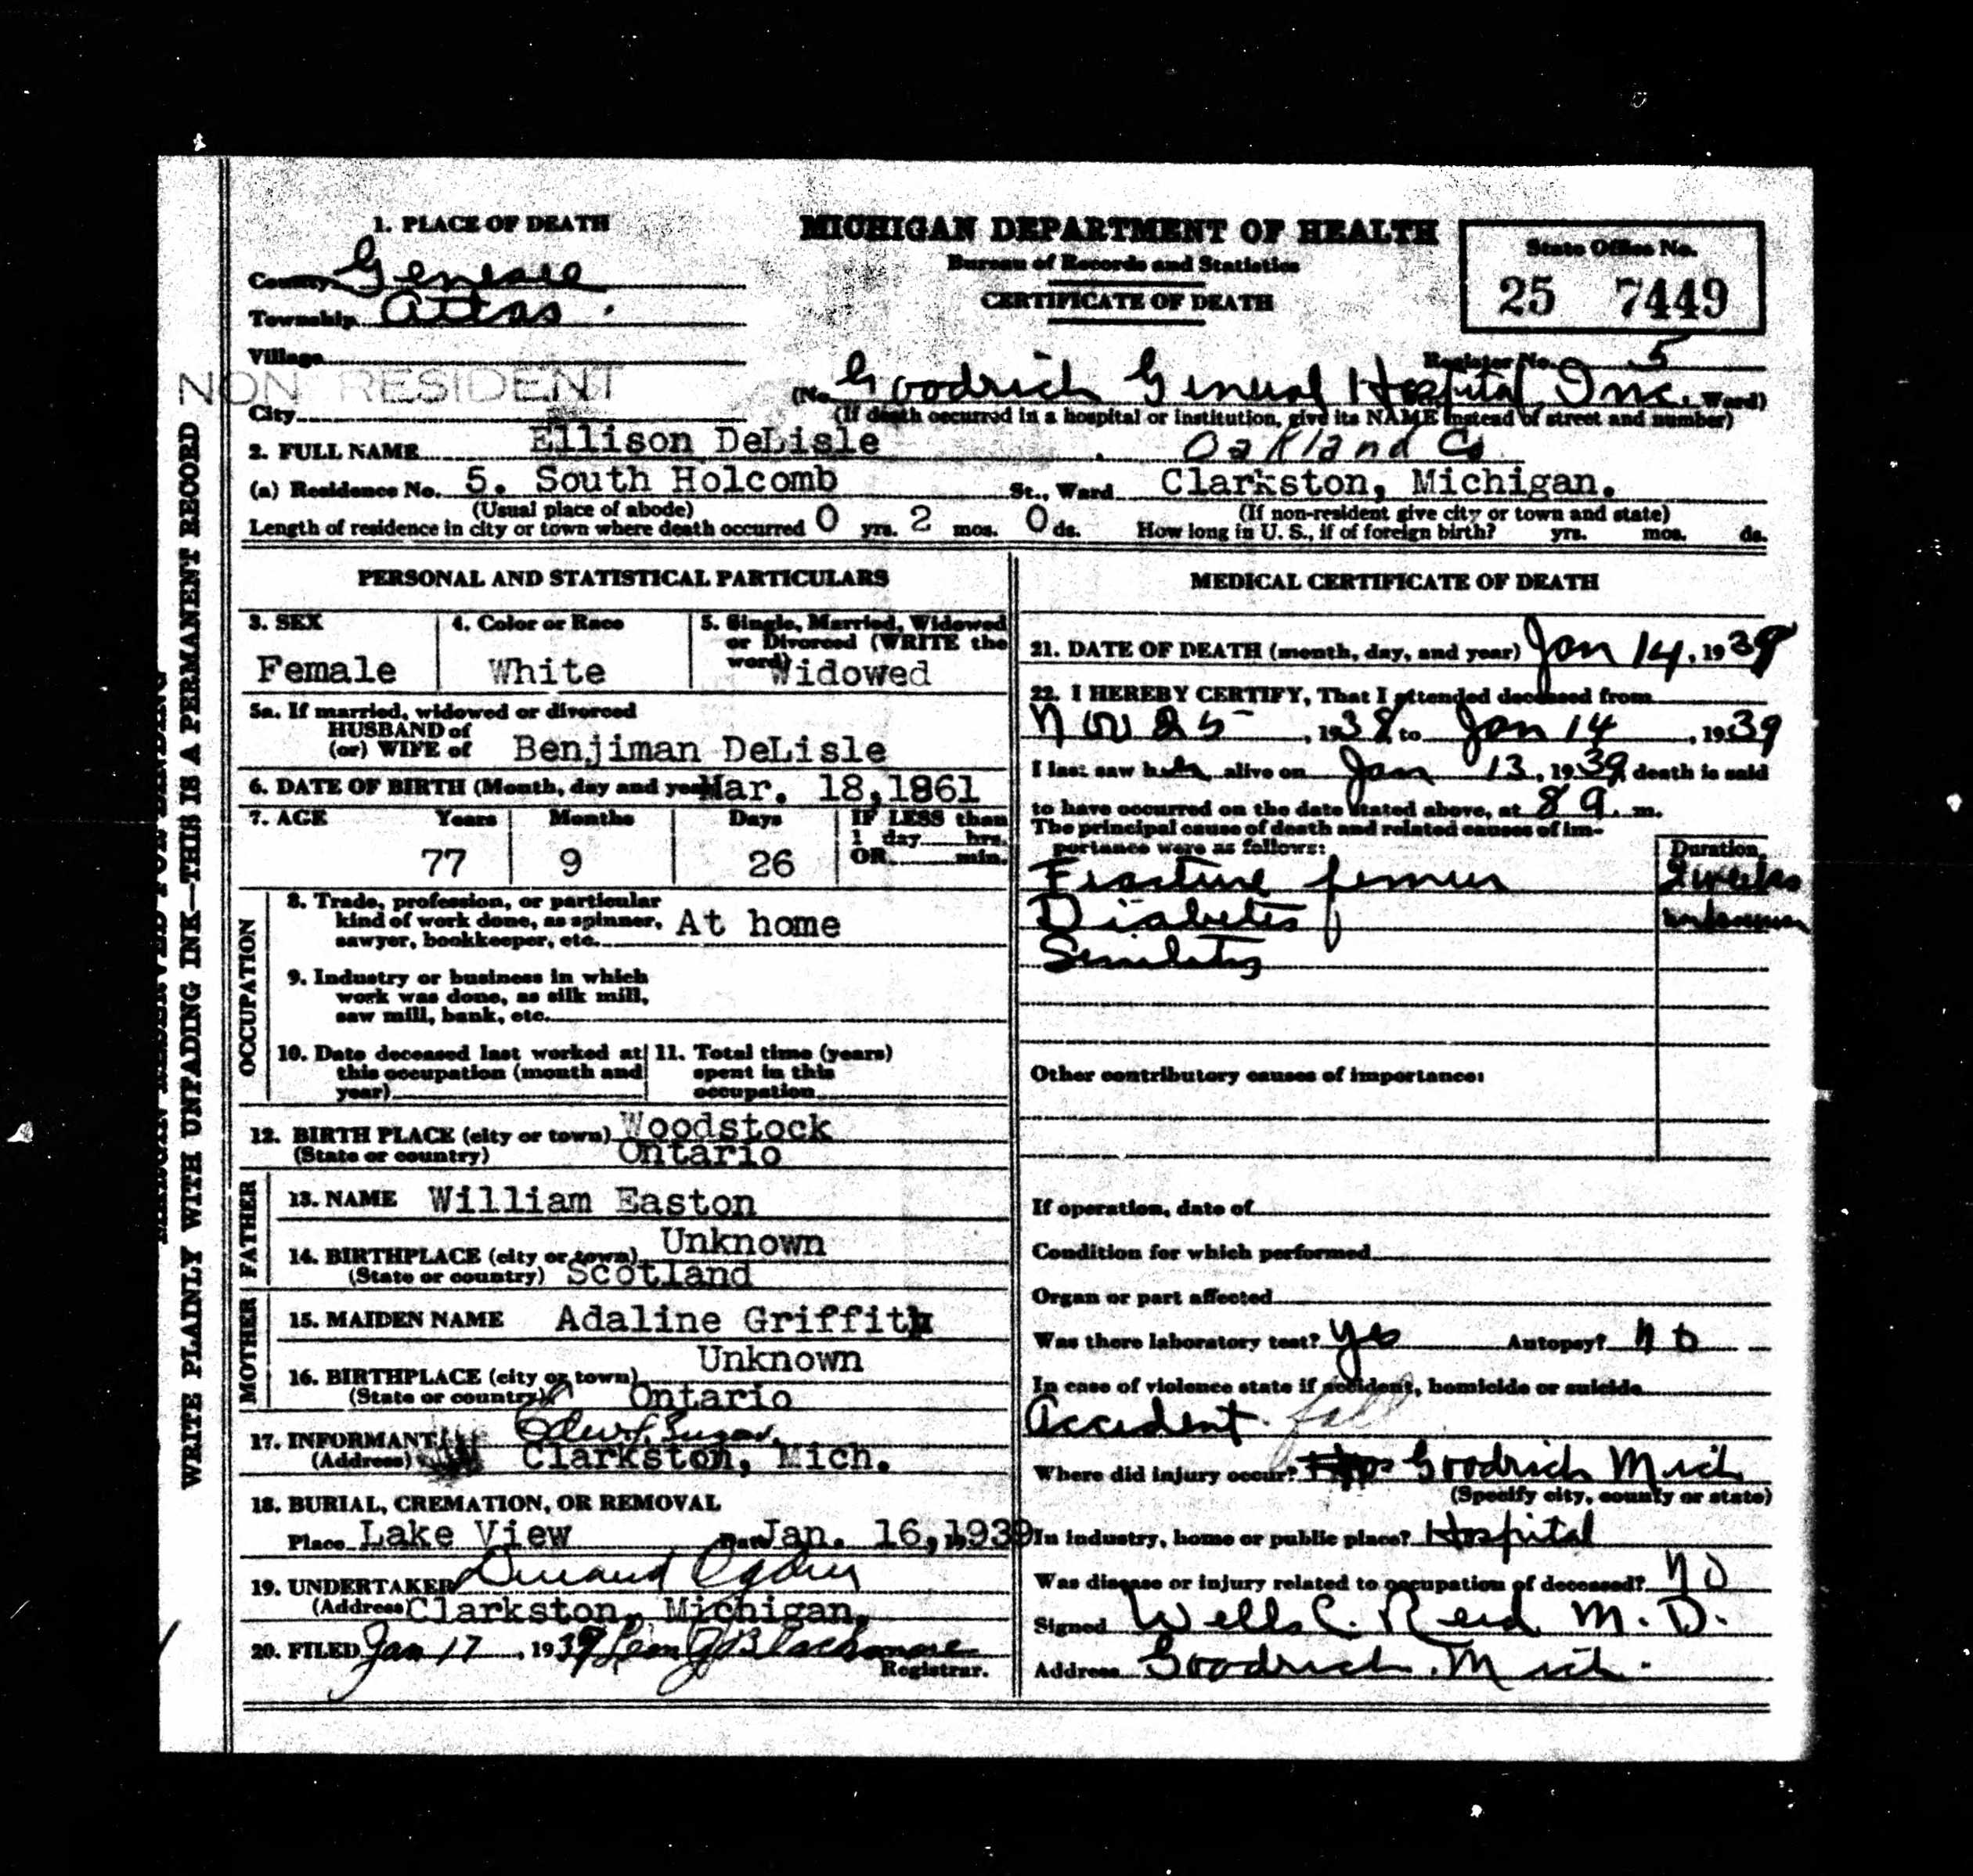 1. PLACE OF DEATH
County Genesee
Township Atlas.
Village
NON RESIDENT
City
MICHIGAN DEPARTMENT OF HEALTH
Bureau of Records and Statistics
CERTIFICATE OF DEATH
State Office No.
25 7449
Register No. 5
(No. Goodrich General Hospital, Inc. Ward)
(If death occurred in a hospital or institution, give its NAME instead of street and number)
2. FULL NAME Ellison DeLisle
Oakland Co
(a) Residence No. 5. South Holcomb St., Ward Clarkston, Michigan.
(Usual place of abode) (If non-resident give city or town and state)
Length of residence in city or town where death occurred 0 yrs. 2 mos. 0 ds. How long in U. S., if of foreign birth? yrs. mos. ds.
WRITE PLAINLY WITH UNFADING INK—THIS IS A PERMANENT RECORD
PERSONAL AND STATISTICAL PARTICULARS
3. SEX
Female
4. Color or Race
White
5. Single, Married, Widowed
or Divorced (WRITE the
word) Widowed
5a. If married, widowed or divorced
HUSBAND of
(or) WIFE of Benjiman DeLisle
6. DATE OF BIRTH (Month, day and year) Mar. 18, 1861
7. AGE Years Months Days IF LESS than
1 day hrs.
77 9 26 OR min.
OCCUPATION
8. Trade, profession, or particular
kind of work done, as spinner, At home
sawyer, bookkeeper, etc.
9. Industry or business in which
work was done, as silk mill,
saw mill, bank, etc.
10. Date deceased last worked at
this occupation (month and
year)
11. Total time (years)
spent in this
occupation
12. BIRTH PLACE (city or town) Woodstock
(State or country) Ontario
FATHER
13. NAME William Easton
14. BIRTHPLACE (city or town) Unknown
(State or country) Scotland
MOTHER
15. MAIDEN NAME Adaline Griffith
16. BIRTHPLACE (city or town) Unknown
(State or country) Ontario
17. INFORMANT
(Address) Clarkston, Mich.
18. BURIAL, CREMATION, OR REMOVAL
Place Lake View Date Jan. 16, 1939
19. UNDERTAKER
(Address) Clarkston, Michigan.
20. FILED Jan 17, 1939
Registrar.
MEDICAL CERTIFICATE OF DEATH
21. DATE OF DEATH (month, day, and year) Jan 14, 1939
22. I HEREBY CERTIFY, That I attended deceased from
Nov 25, 1938, to Jan 14, 1939
I last saw her alive on Jan 13, 1939, death is said
to have occurred on the date stated above, at 8 a. m.
The principal cause of death and related causes of im-
portance were as follows: Duration
Fracture femur weeks
Diabetes unknown
Senility
Other contributory causes of importance:
If operation, date of
Condition for which performed
Organ or part affected
Was there laboratory test? yes Autopsy? no
In case of violence state if accident, homicide or suicide
Accident fall
Where did injury occur? Goodrich Mich
(Specify city, county or state)
In industry, home or public place? Hospital
Was disease or injury related to occupation of deceased? no
Signed Wells C. Reid M. D.
Address Goodrich, Mich.